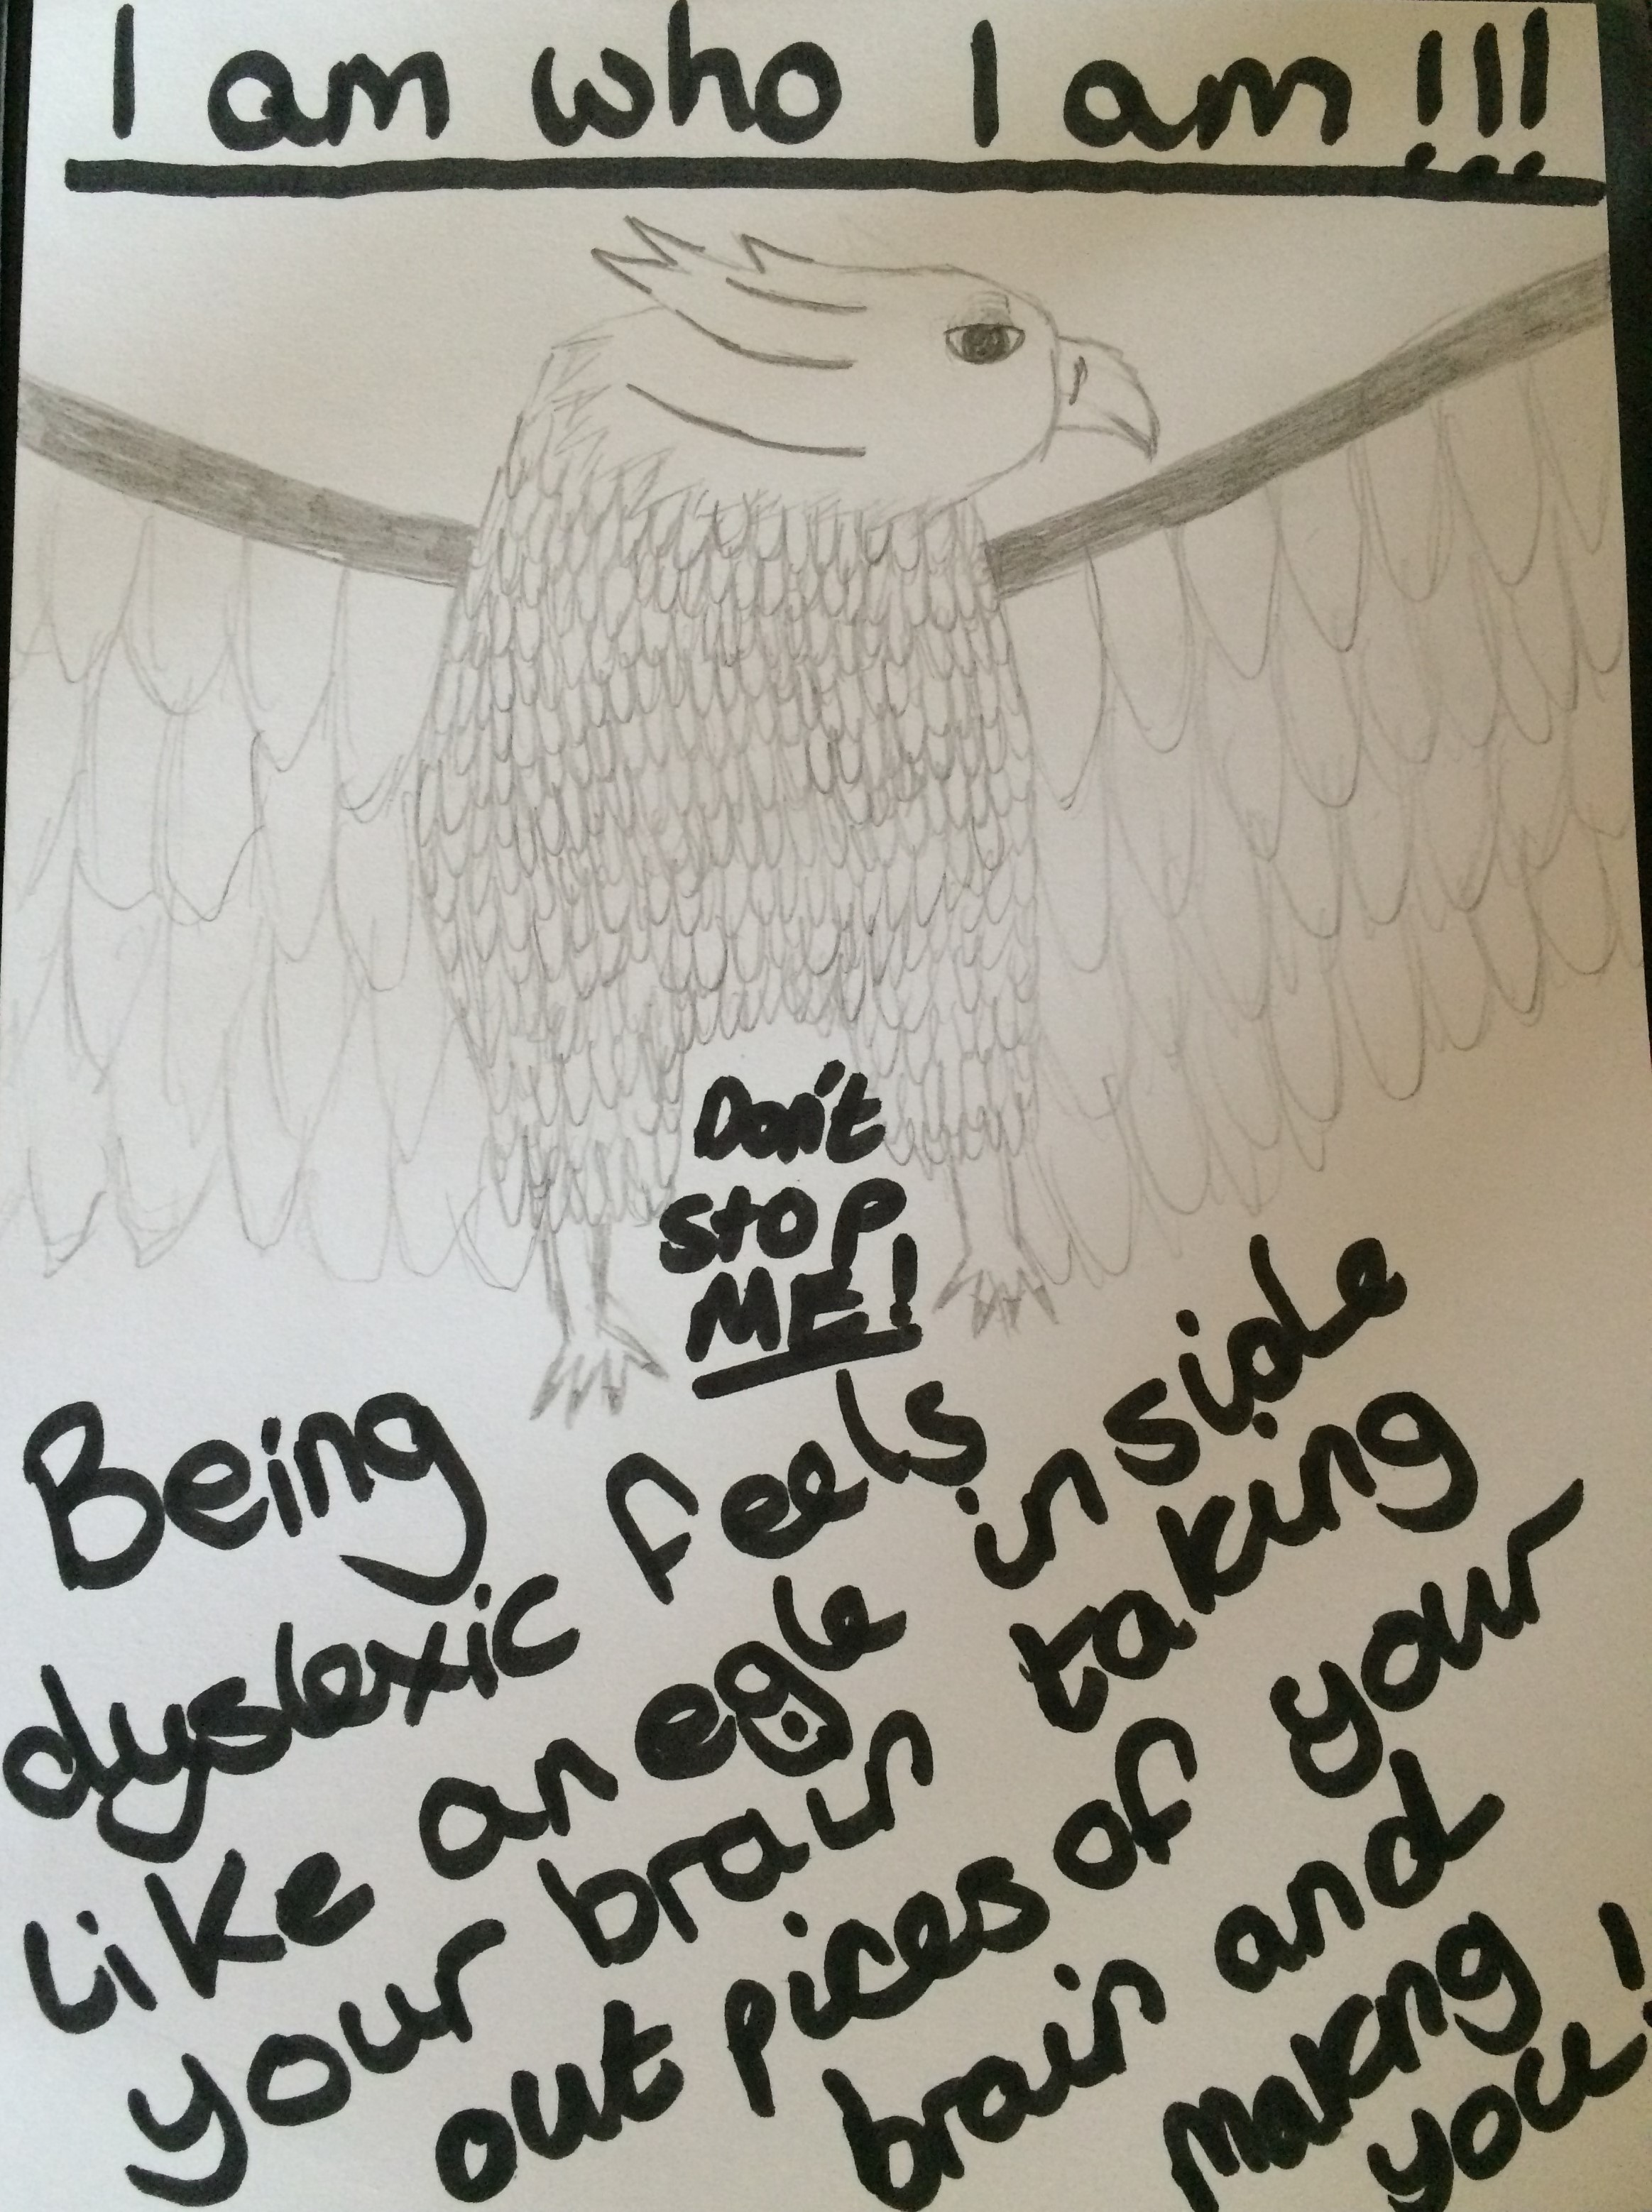 I am who I am !!!
Don't
stop
ME!
Being
dyslexic feels
like an egle inside
your brain taking
out pices of your
brain and
makng
you!